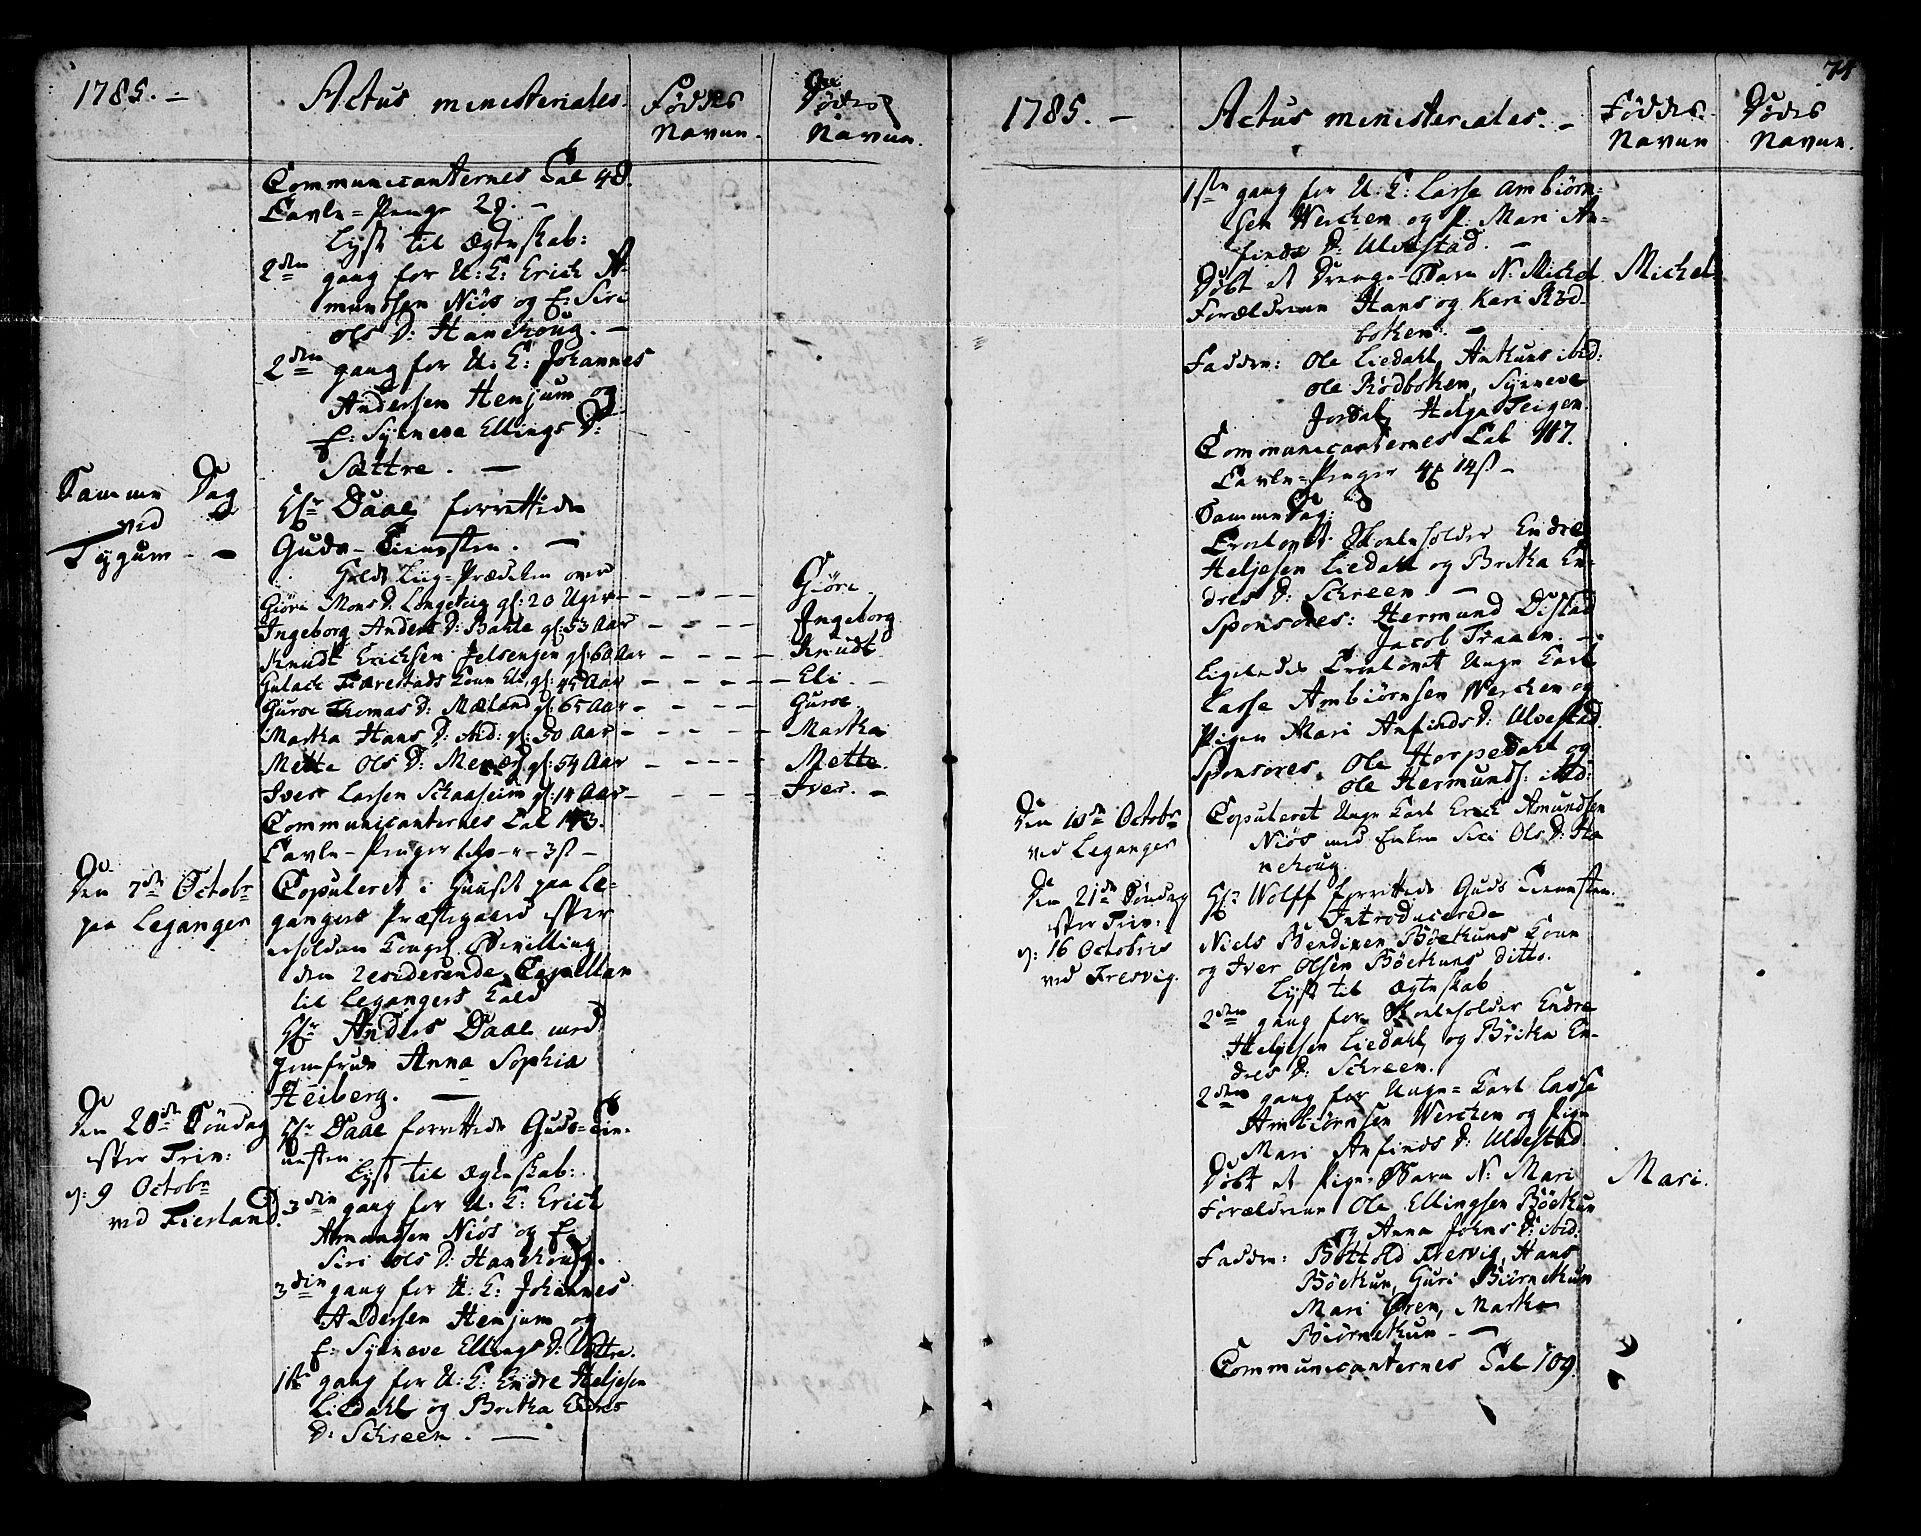 1785. –
Actus ministeriales.
Føddes
Navne.
Dødes
Navne.
Communicanternes Tal 48.
Tavle-Penge
Lyst til Ægteskab:
2den gang for U: K: Erich A-
mundsen Niøs og E: Siri
Ols D: Hanehoug. –
2den gang for U: K: Johannes
Andersen Henjum og
E: Synneve Ellings D:
Sættre. –
Samme Dag
ved
Tygum – –
Hr Daae forrettede
Guds-Tienesten. –
Holdt Liig-Prædiken over
Giøri Mons D: gl: 20 Uger – – – – Giøri.
Ingeborg Anders D: Bahle gl: 53 Aar – – – – Ingeborg
Knudt Erichsen gl: 60 Aar – – – – Knudt
Gulach Tiærestads Kone Eli gl: 45 Aar – – – – Eli. –
Guroe Thomas D: Mæland gl: 65 Aar – – – – Guroe.
Martha Hans D: ibid: gl: 50 Aar – – – – Martha
Mette Ols D: gl: 54 Aar – – – – Mette.
Iver Larsen Schaaheim gl: 14 Aar – – – – Iver. –
Communicanternes Tal 143.
Tavle-Penger
Den 7de Octobr
paa Leganger
Copuleret i Huuset paa Le-
gangers Præstegaard efter
erholden Kongl. Bevilling
den residerende Capellan
til Legangers Kald
Hr Anders Daae med
Jomfrue Anna Sophia
Heiberg. –
Den 20de Søndag
efter Trin:
ɔ: 9 Octobr
ved Fierland.
Hr Daae forrettede Guds-Tie-
nesten.
Lyst til Ægteskab:
3die gang for U: K: Erich
Amundsen Niøs og E:
Siri Ols D: Hanehoug.
3die gang for U: K: Johannes
Andersen Henjum og
E: Synneve Ellings D: Sættre.
1ste gang for U: K: Endre Heljesen
Liedahl og Britha Endres
D: Schreen. –
1785. –
Actus ministeriales. –
Føddes
Navne
Dødes
Navne.
74
1ste gang for U: K: Lasse Ambiørn-
sen Werchen og P: Mari An-
finds D: Ulvestad. –
Døbt et Drenge-Barn N: Michel Michel
Forældrene Hans og Kari Rød-
boken. –
Faddere: Ole Liedahl, Anthuns ibid:
Ole Rødboken, Synneve
Jordal, Helga Teigen.
Communicanternes Tal 117.
Tavle-Penger 14 ß –
Samme Dag:
Trolovet Skoleholder Endre
Heljesen Liedahl og Britha En-
dres D: Schreen. –
Sponsores: Hermund Distad
Jacob Traaen. –
Ligeledes Trolovet Unge Karl
Lasse Ambiørnsen Werchen og
Pigen Mari Anfinds D: Ulvestad.
Sponsores. Ole Horpedahl og
Ole Hermunds: ibid:
Den 10de Octobr
ved Leganger
Copuleret Unge Karl Erich Amundsen
Niøs med Enken Siri Ols D: Ha-
nehoug.
Den 21de Søndag
efter Trin:
ɔ: 16 Octobris
ved Fresvig.
Hr Wolff forrettede Guds Tienesten.
Introducerede
Niels Bendixen Bøethuns Kone
og Iver Olsen Bøethuns ditto.
Lyst til Ægteskab
2den gang for Skoleholder Endre
Heljesen Liedahl, og Britha En-
dres D: Schreen.
2den gang for Unge-Karl Lasse
Ambiørnsen Werchen og Pige
Mari Anfinds D: Ulvestad.
Døbt et Pige-Barn N: Mari Mari.
Forældrene Ole Ellingsen Bøethun
og Anna Johns D: ibid.
Faddere: Bottold Fresvig, Hans
Bøethun, Guri Biørnethun
Mari Øren, Martha
Biørnethun –
Communicanternes Tal 109.